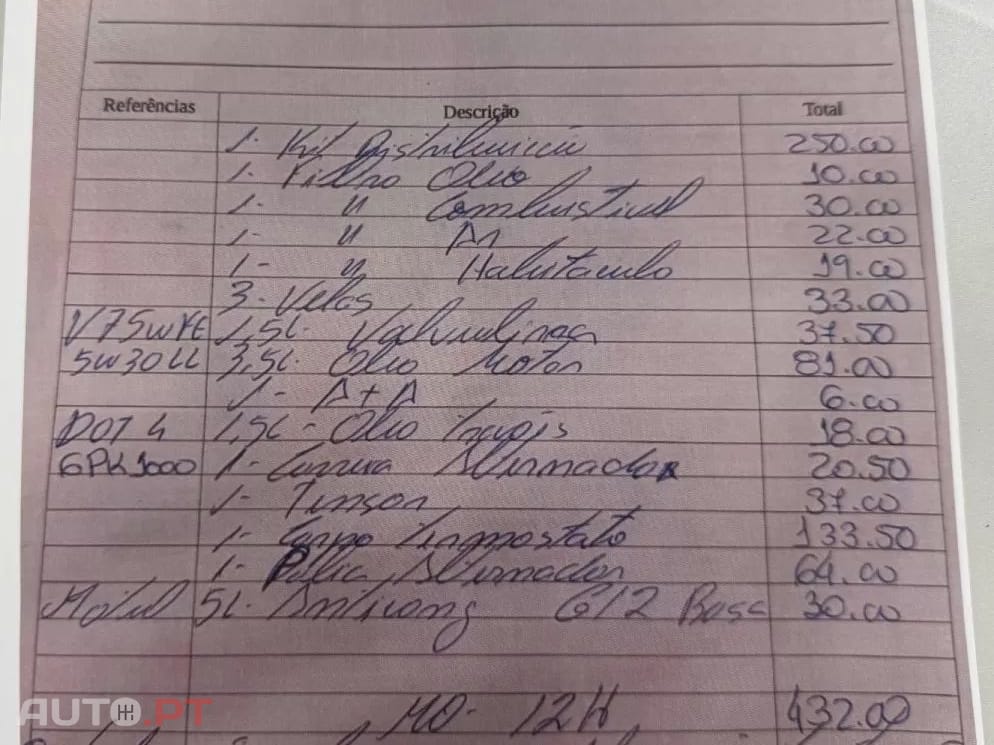 Referências Descrição Total
1- Kit Distribuição 250.00
1. Filtro Oleo 10.00
1- " Combustivel 30.00
1- " Ar 22.00
1- " Habitaculo 19.00
3- Velas 33.00
V75WYE 1,5L- Valvulinas 37.50
5W30LL 3,5L- Oleo Motor 81.00
1- A+A 6.00
DOT 4 1,5L- Oleo Travõis 18.00
6PK1000 1- Correia Alternador 20.50
1- Tensor 37.00
1- Corpo Termostato 133.50
1- Polie Alternador 64.00
Motul 5L- Anticong G12 Base 30.00
MO- 12H 432.00
AUTO.PT